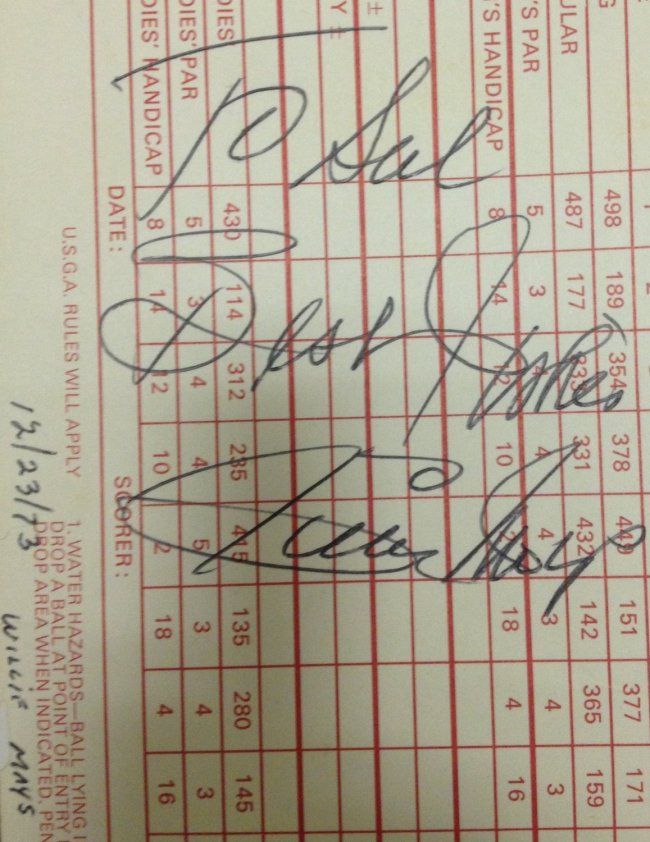 To Sal
Best Wishes
Willie Mays
498 189 354 378 440 151 377 171
ULAR 487 177 331 432 142 365 159
'S PAR 5 3 4 4 3 4 3
'S HANDICAP 8 14 12 10 18 4 16
DIES 430 114 312 235 135 280 145
DIES' PAR 5 3 4 4 5 3 4 3
DIES' HANDICAP 8 14 12 10 2 18 4 16
DATE: SCORER:
U.S.G.A. RULES WILL APPLY
1. WATER HAZARDS—BALL LYING
DROP A BALL AT POINT OF ENTRY
DROP AREA WHEN INDICATED. PEN
12/23/73 WILLIE MAYS